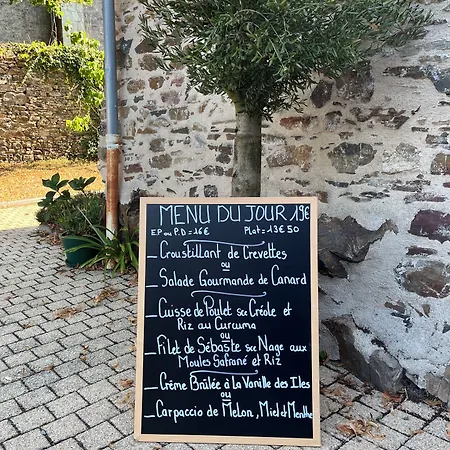 MENU DU JOUR 19€
E.P ou P.D = 16€ PLAT = 13€50
_ Croustillant de Crevettes
ou
_ Salade Gourmande de Canard
_ Cuisse de Poulet sce Créole et
Riz au Curcuma
ou
_ Filet de Sébaste sce Nage aux
Moules Safrané et Riz
_ Crème Brûlée à la Vanille des Iles
ou
_ Carpaccio de Melon, Miel et Menthe